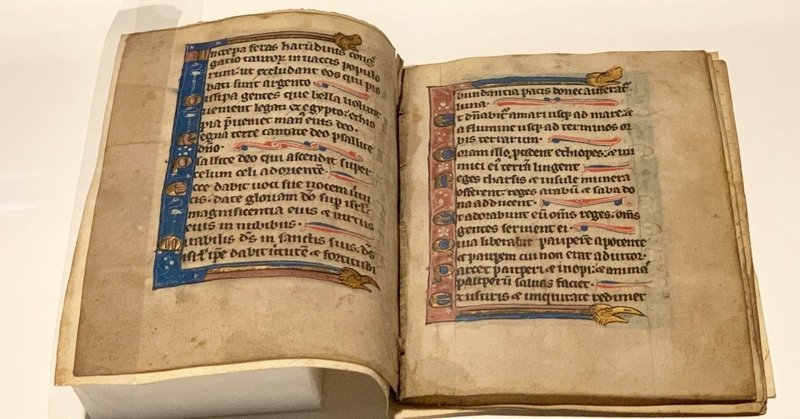 Increpa feras harundinis cong̃
gatio tauroꝝ in vaccis populo
rum: ut excludant eos qui pro
bati sunt argento.
issipa gentes que bella volunt
venient legati ex egypto: ethio
pia p̃veniet man⁹ eius deo.
egna terre cantate deo psallite
dño.
sallite deo qui ascendit super
celum celi ad orientē.
cce dabit voci sue vocem virtu
tis: date gloriam dõ sup isrł
magnificentia eius ⁊ virtus
eius in nubibus.
Mirabilis ds̃ in sanctis suis. ds̃
isrł ipẽ dabit virtutē ⁊ fortitudi
bundantia pacis donec auferat᷑
luna.
Et dñabit᷑ a mari usqꝫ ad mare: ⁊
a flumine usqꝫ ad terminos or
bis terrarum.
Coram illo p̃cident ethiopes: ⁊ ini
mici ei⁹ terrã lingent
eges tharsis ⁊ insule munera
offerent: reges arabũ ⁊ saba do
na adducent.
Et adorabunt eũ om̃s reges: om̃s
gentes servient ei.
Quia liberabit pauperẽ a potente
⁊ pauperem cui non erat adiutor.
Parcet pauperi ⁊ inopi: ⁊ animas
pauperũ salvas faciet.
Ex usuris ⁊ iniquitate redimet